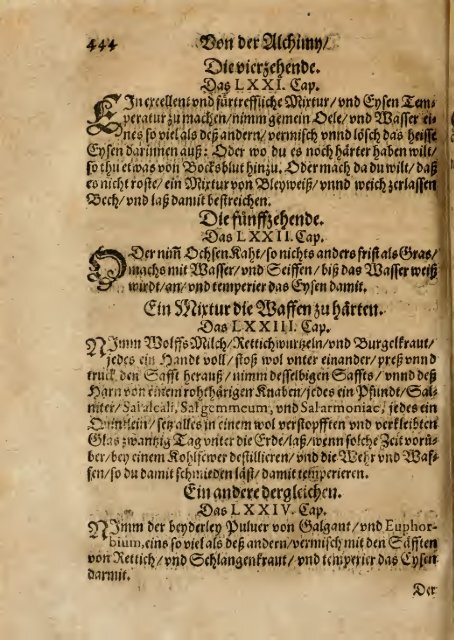 444 Von der Alchimy/
Die vierzehende.
Das LXXI. Cap.
EIn excellent vnd fürtreffliche Mixtur/ vnd Eysen Tem-
peratur zu machen/ nimm gemein Oele/ vnd Wasser ei-
nes so viel als deß andern/ vermisch vnnd lösch das heisse
Eysen darinnen auß: Oder wo du es noch härter haben wilt/
so thu etwas von Bocksblut hinzu. Oder mach da du wilt/ daß
es nicht roste/ ein Mixtur von Bleyweiß/ vnnd weich zerlassen
Bech/ vnd laß damit bestreichen.
Die fünffzehende.
Das LXXII. Cap.
ODer nim̃ Ochsen Kaht/ so nichts anders frist als Gras/
machs mit Wasser/ vnd Seiffen/ biß das Wasser weiß
wirdt/ an/ vnd temperier das Eysen damit.
Ein Mixtur die Waffen zu härten.
Das LXXIII. Cap.
NImm Wolffs Milch/ Rettichwurtzeln/ vnd Burgelkraut/
jedes ein Handt voll/ stoß wol vnter einander/ preß vnnd
truck den Safft herauß/ nimm desselbigen Saffts/ vnnd deß
Harn von einem rohthärigen Knaben/ jedes ein Pfundt/ Sal-
niter/ Sal alcali, Sal gemmeum, vnd Sal armoniac, jedes ein
Quintlein/ setz alles in einem wol verstopfften vnd verkleibten
Glas zwantzig Tag vnter die Erde/ laß/ wenn solche Zeit vorü-
ber/ bey einem Kohlfewer destillieren/ vnd die Wehr vnd Waf-
fen/ so du damit schmieden läst/ damit temperieren.
Ein andere dergleichen.
Das LXXIV. Cap.
NImm der beyderley Puluer von Galgant/ vnd Euphor-
bium, eins so viel als deß andern/ vermisch mit den Säfften
von Rettich/ vnd Schlangenkraut/ vnd temperier das Eysen
darmit.
Der